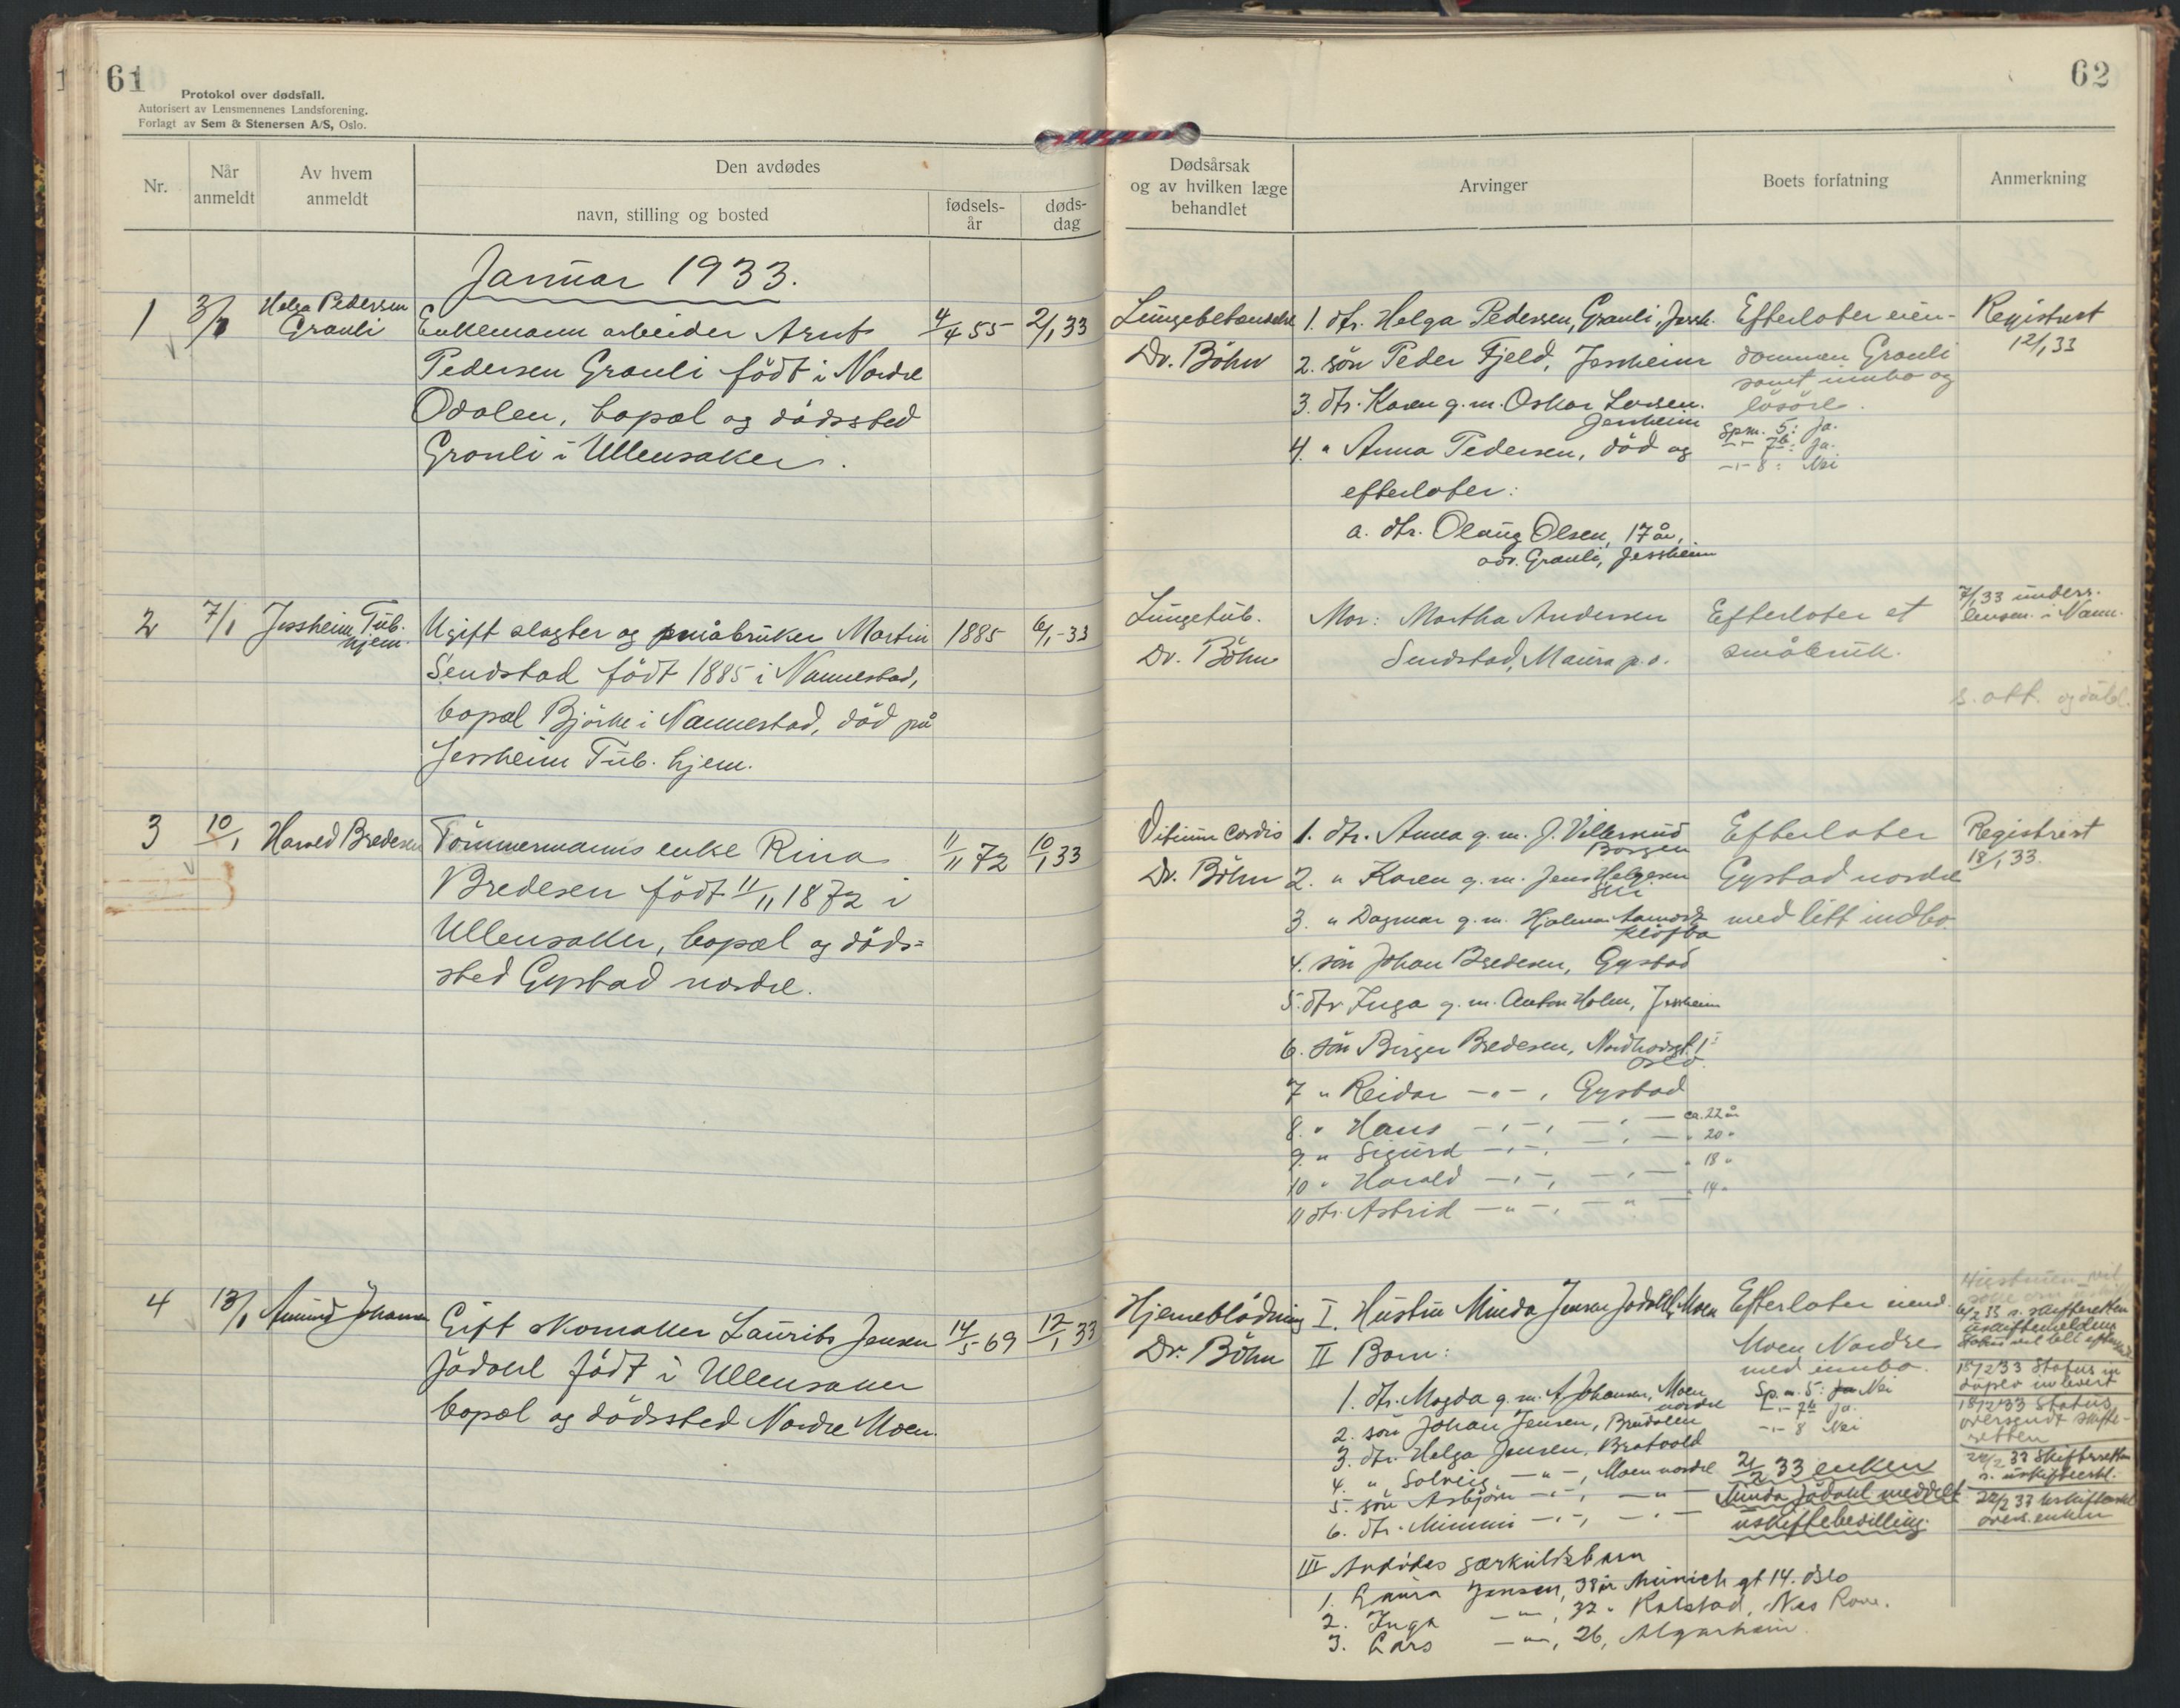 61
Protokol over dødsfall.
Autorisert av Lensmennenes Landsforening.
Forlagt av Sem & Stenersen A/S, Oslo.
Nr.
Når anmeldt
Av hvem anmeldt
Den avdødes
navn, stilling og bosted
fødsels-år
døds-dag
Januar 1933.
1 3/1 Helga Pedersen Enkemann arbeider Arnt 4/4 55 2/1 33
Granli
Pedersen Granli födt i Nordre
Odalen, bopæl og dödssted
Granli i Ullensaker.
2 7/1 Jessheim Tub. Ugift slagter og småbruker Martin 1885 6/1-33
hjem.
Sendstad födt 1885 i Nannestad,
bopæl Björke i Nannestad, död på
Jessheim Tub. hjem.
3 10/1 Harald Bredesen Tömmermanns enke Rina 11/11 72 10/1 33
Bredesen födt 11/11 1872 i
Ullensaker, bopæl og döds=
sted Gystad nordre.
4 13/1 Amund Johansen Gift skomaker Laurits Jensen 14/5 69 12/1 33
Jödahl födt i Ullensaker
bopæl og dödssted Nordre Moen.
62
Dødsårsak
og av hvilken læge
behandlet
Arvinger
Boets forfatning
Anmerkning
Lungebetændelse 1. dtr. Helga Pedersen, Granli, Jessh. Efterlater eien- Registrert
Dr. Böhn 2. sön Peder Fjeld, Jessheim dommen Granli 12/1 33
samt innbo og
3. dtr. Karen g.m. Oskar Larsen. lösöre.
Jessheim
Spm. 5: Ja.
4. " Anna Pedersen, död og -"- 7b: Ja.
-"- 8: Nei
efterlater:
a. dtr. Olaug Olsen, 17 år,
adr. Granli, Jessheim
Lungetub. Mor: Martha Andersen Efterlater et 7/1 33 underr.
lensm. i Nann.
Dr. Böhn Sendstad, Maura p.o. småbruk.
s. att.
Vitium cordis 1. dtr. Anna g.m. J. Villersund Efterlater Registrert
Borgen
18/1 33.
Dr. Böhn 2. " Karen g.m. Jens Helgesen Gystad nordre
3. " Dagmar g.m. Hjalmar med litt indbo.
Klöfta
4. sön Johan Bredesen, Gystad
5. dtr Inga g.m. Anton Holm, Jessheim
6. sön Birger Bredesen,
Oslo.
7 " Reidar -"-, Gystad
8. " Hans -"-, -"- ca. 22 år
9. " Sigurd -"-, -"- " 20 "
10 " Harald -"-, -"- " 18 "
11 dtr. Astrid -"-, -"- " 14 "
Hjerneblödning I. Hustru Minda Jensen Jödahl, Moen Efterlater eiend.
Dr. Böhn II Barn: Moen Nordre
med innbo.
1. dtr. Magda g.m. A Johansen, Moen nordre Sp.m. 5: Nei
-"- 7b Ja.
2. sön Johan Jensen, Brudalen -"- 8 Nei
3. dtr. Helga Jensen, Bratvold
4. " Solveig -"-, Moen nordre
5. sön Asbjörn -"-, -"-
6. dtr. Mimmi -"-, -"-
21/2 33 enken
Minda Jödahl meddelt
uskiftebevilling.
15/2 33 Status in
duplo innlevert
18/2 33 Status
oversendt skifte-
retten
22/2 33 Skifteretten
s. uskifteerkl.
oversendt enken
III Avdödes særkuldsbarn
1. Laura Jensen, 38 år Munich gt 14. Oslo
2. Inga -"-, 32 " Rolstad, Nes Rom.
3. Lars -"-, 26, Algarheim.